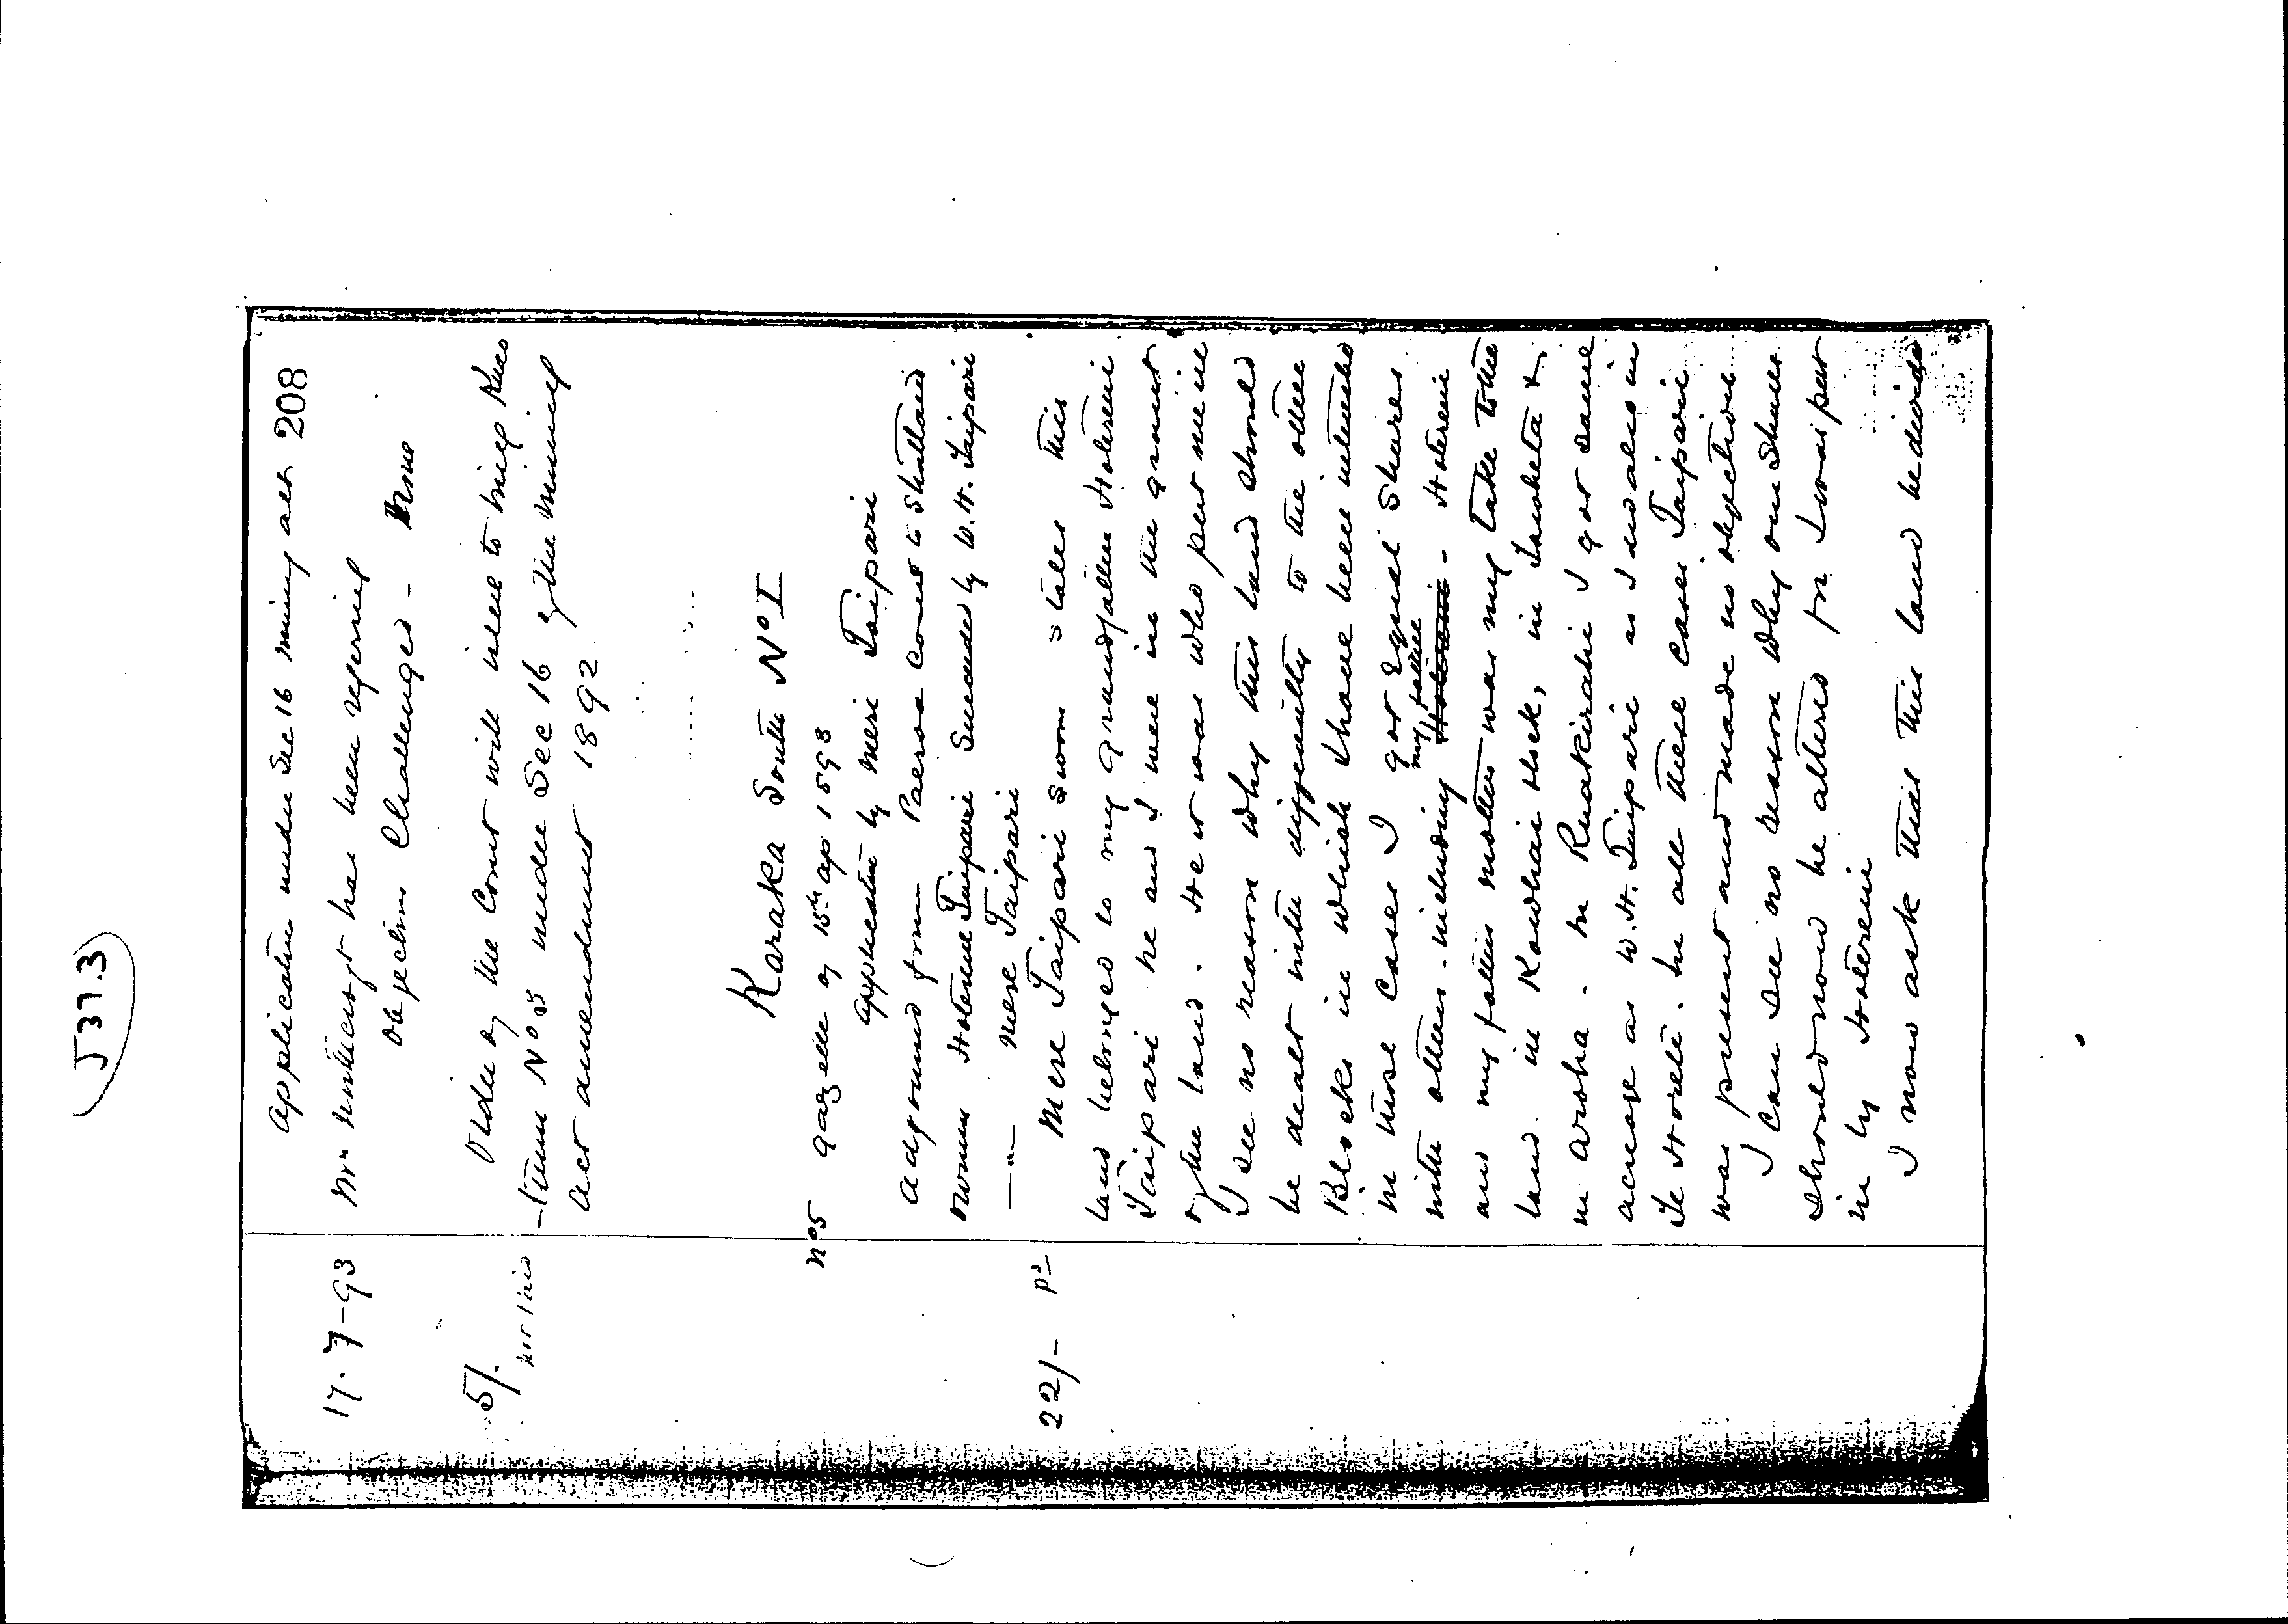 J37.3
208
Application under Sec 16 Mining act
17-7-93 Mr has been referred
Objections Challenged - None
5/. Order of the Court will issue to
not paid No 3 under Sec 16 of the Mining
Act amendment 1892
Karaka South No I
No 5 Gazette of 15th ap 1893
Application by Mere Taipari
Adjourned from Paeroa Court to Shortland
owners Hotereni Taipari Succeeded by W.H. Taipari
—"— Mere Taipari
22/- pd Mere Taipari Sworn states this
land belonged to my grandfather Hotereni
Taipari he and I were in the grant
of the land. He it was who put me in
I see no reason why this land should
be dealt with differently to the other
Blocks in which I have been interested
in those cases I got Equal Shares
with others - including my father - Hotereni
and my fathers mother was my take to the
land. in Kowhai Block, in &
in Aroha. In Ruakiraki I got same
acreage as W.H. Taipari as I was also in
Te Horete. In all these cases Taipari
was present and made no objection
I can see no reason why our Shares
should now be altered for I was put
in by Hotereni
I now ask that this land be divided